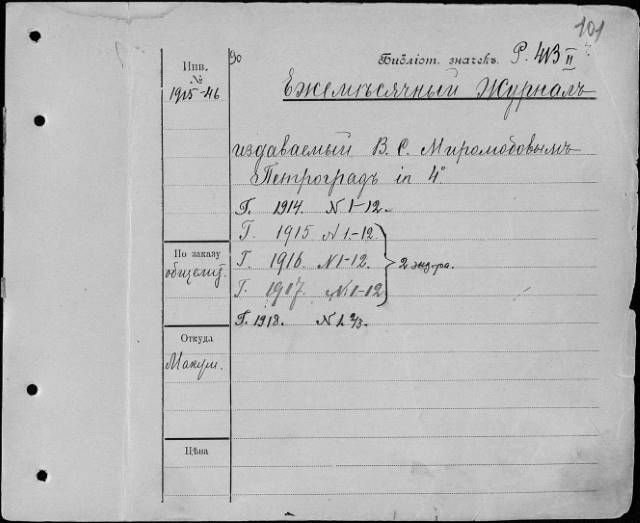 101
90
Библіот. значекъ P. 413 II
Инв.
№
1915-46
Ежемѣсячный Журналъ
издаваемый В. С. Миролюбовымъ
Петроградъ in 4°
Г. 1914. N 1-12.
Г. 1915 N 1-12.
Г. 1916. N 1-12. 2 экз-ра.
Г. 1917. N 1-12
Г. 1918. N 1. 2/3.
По заказу
общему
Откуда
Макум.
Цѣна